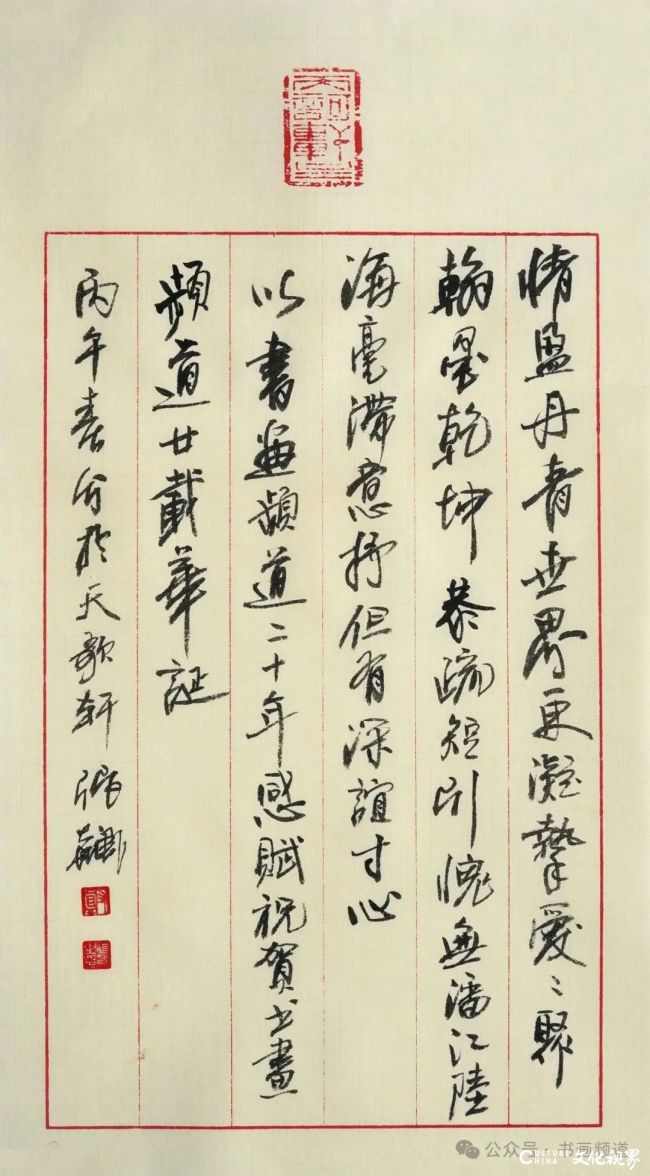 情盈丹青世界更凝挚爱〻聚
翰墨乾坤恭疏短引愧無潘江陸
海毫滞意抒但有深誼寸心
以書画频道二十年感賦祝賀书畫
频道廿載華誕
丙午春分於天歌轩 張
公众号·书画频道
CULTURE CHINA 文化视界